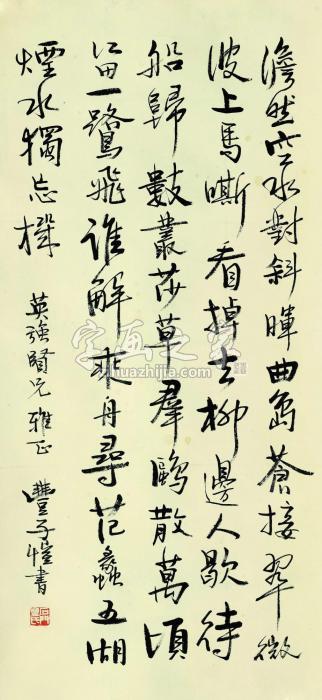 澹然空水對斜暉曲島蒼接翠微
波上馬嘶看掉去柳邊人歇待
船歸數叢莎草羣鷗散萬頃
江田一鷺飛誰解乘舟尋范蠡五湖
煙水獨忘機
英強賢兄雅正 豐子愷書
字画之家
huazhijia.com